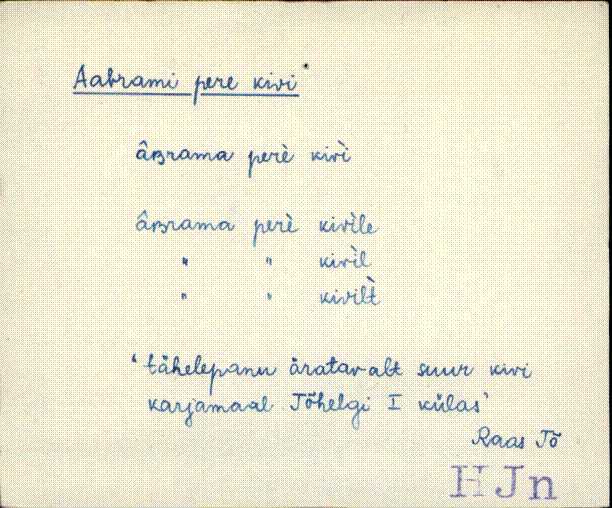 Aabrami pere kivi
âʙrama perè kivì
âʙrama perè kivìle
" " kivìl
" " kivilt̀
'tähelepanu äratavalt suur kivi
karjamaal Tõhelgi I külas'
Raas Jõ
HJn